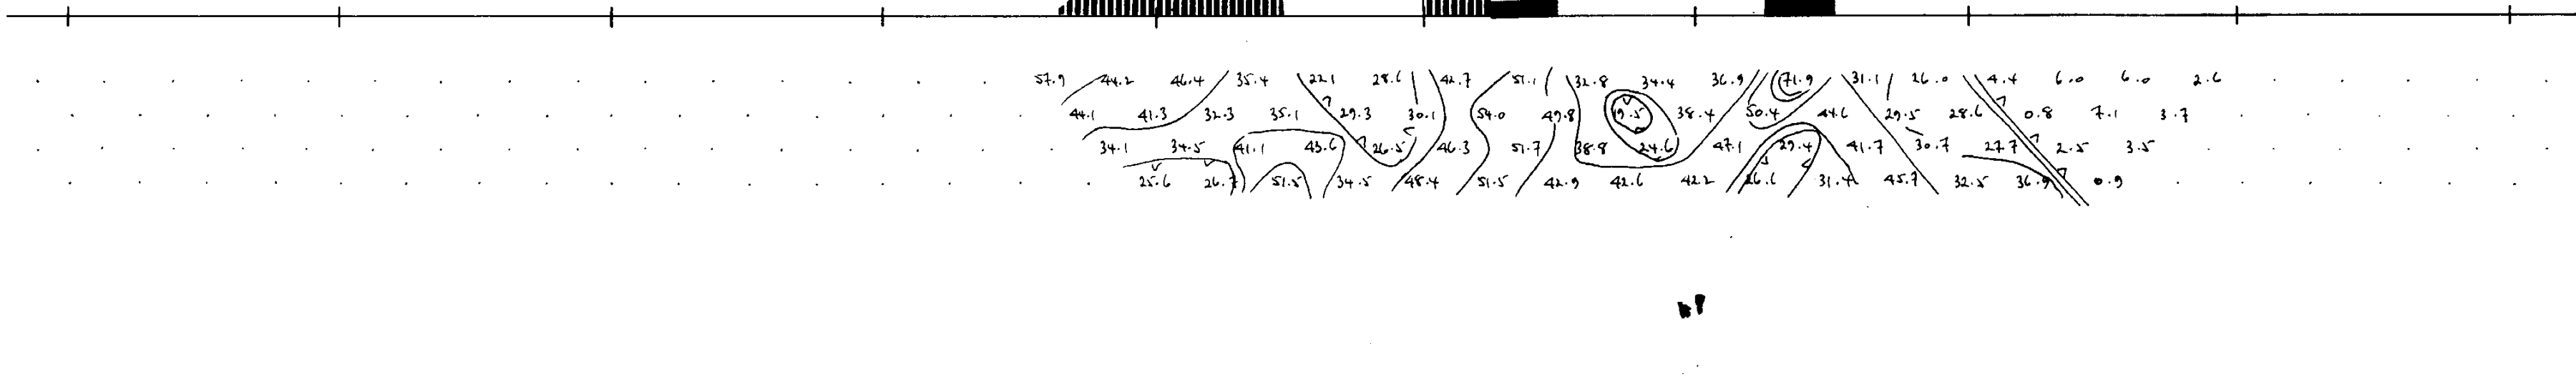 57.9 44.2 46.4 35.4 22.1 28.6 42.7 51.1 32.8 34.4 36.9 71.9 31.1 26.0 4.4 6.0 6.0 2.6
44.1 41.3 32.3 35.1 29.3 30.1 54.0 49.8 19.5 38.4 50.4 44.6 29.5 28.6 0.8 7.1 3.7
34.1 34.5 41.1 43.6 26.5 46.3 51.7 38.8 24.6 47.1 29.4 41.7 30.7 27.7 2.5 3.5
25.6 26.7 51.5 34.5 48.4 51.5 42.9 42.6 42.2 26.6 31.4 45.7 32.5 36.9 0.9